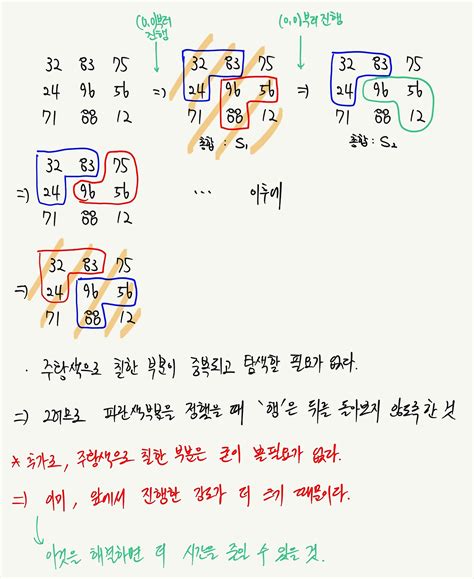 (0,0)부터 진행
(0,0)부터 진행
32 83 75
24 96 56
71 88 12
=)
32 83 75
24 96 56
71 88 12
총합 : S1
=)
32 83 75
24 96 56
71 88 12
총합 : S2
=)
32 83 75
24 96 56
71 88 12
... 이후에
=)
32 83 75
24 96 56
71 88 12
· 주황색으로 칠한 부분이 중복되고 탐색할 필요가 없다.
=) 그러므로 파란색부분을 정했을 때 '행'은 뒤를 돌아보지 않도록 한 것
* 추가로, 주황색으로 칠한 부분은 굳이 볼 필요가 없다.
=) 이미, 앞에서 진행한 강도가 더 크기 때문이다.
이것을 해결하면 더 시간을 줄일 수 있을 것.